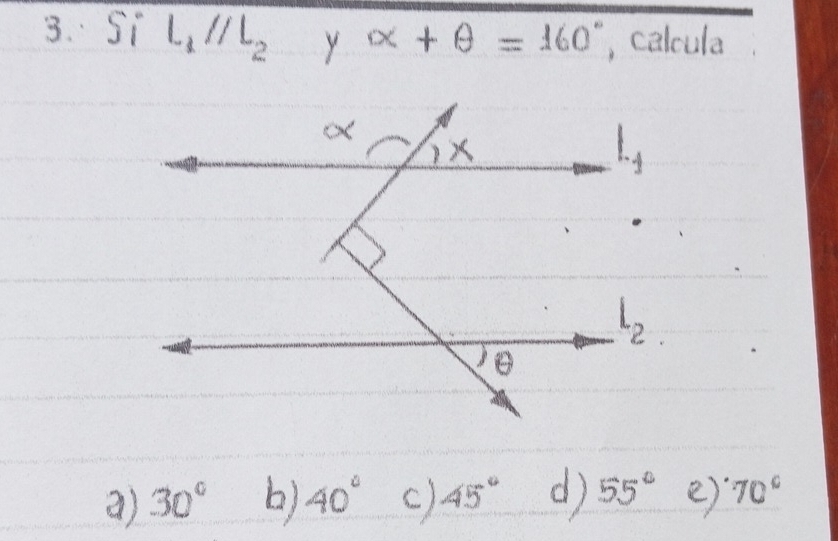 3. Si L₁ // L₂ y α + θ = 160°, calcula
α x L₁
L₂
θ
a) 30° b) 40° c) 45° d) 55° e) 70°